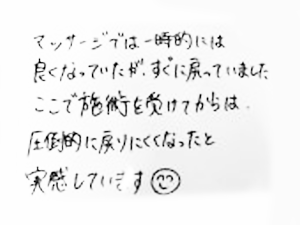 マッサージでは一時的には
良くなっていたが、すぐに戻っていました
ここで施術を受けてからは、
圧倒的に戻りにくくなったと
実感しています